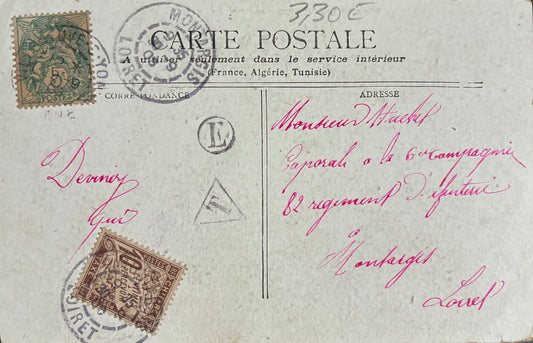 3,30 E
CARTE POSTALE
A utiliser seulement dans le service intérieur
(France, Algérie, Tunisie)
CORRESPONDANCE
ADRESSE
MONTARGIS
LOIRET
E
T
5
10
Devinez
Qui
Monsieur
Caporal a la 6e compagnie
82 regiment D'
a
Montargis
Loiret
LOIRET